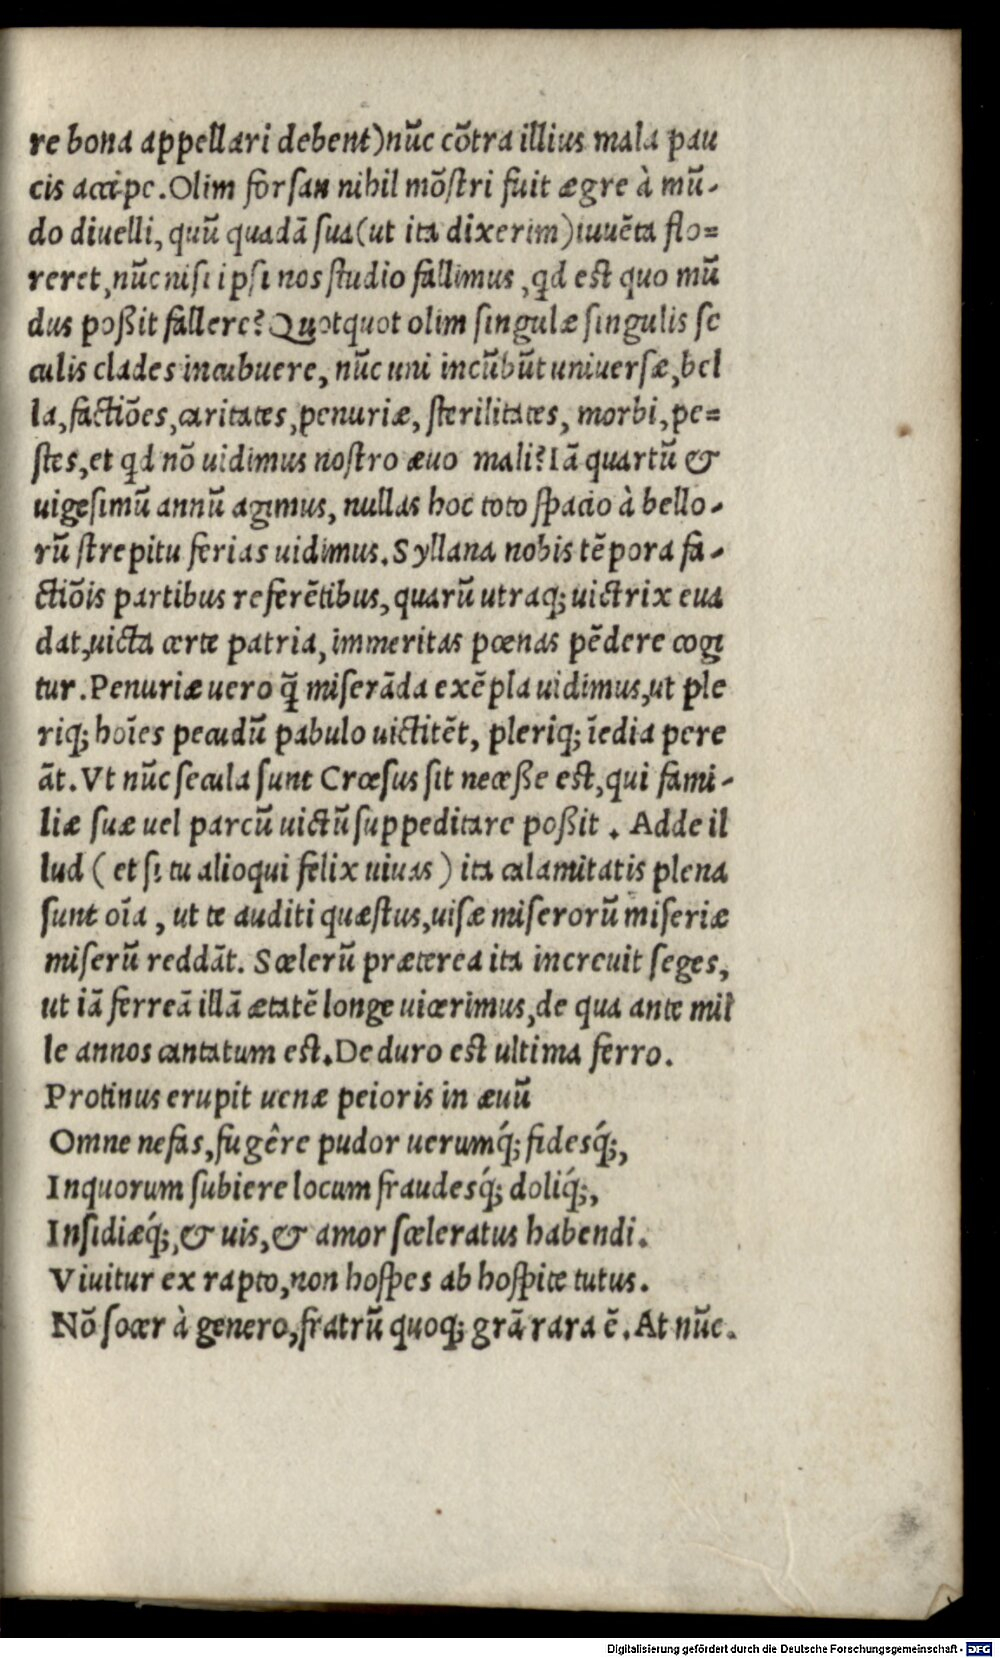 re bona appellari debent)nūc cōtra illius mala pau
cis accipe.Olim forsan nihil mōstri fuit ægre à mū-
do diuelli, quū quadā sua(ut ita dixerim)iuuēta flo=
reret,nūc nisi ipsi nos studio fallimus ,qd est quo mū
dus poßit fallere?Quotquot olim singulæ singulis se
culis clades incubuere, nūc uni incūbūt uniuersæ,bel
la,factiōes,caritates,penuriæ, sterilitates, morbi,pe=
stes,et qd nō uidimus nostro æuo mali?Iā quartū &
uigesimū annū agimus, nullas hoc toto spacio à bello-
rū strepitu ferias uidimus.Syllana nobis tēpora fa-
ctiōis partibus referētibus,quarū utraq; uictrix eua
dat,uicta certe patria, immeritas pœnas pēdere cogi
tur.Penuriæ uero q̄ miserāda exēpla uidimus,ut ple
riq; hoīes pecudū pabulo uictitēt, pleriq; īedia pere
āt.Vt nūc secula sunt Crœsus sit neceße est,qui fami-
liæ suæ uel parcū uictū suppeditare poßit . Adde il
lud ( et si tu alioqui felix uiuas ) ita calamitatis plena
sunt oīa , ut te auditi quæstus,uisæ miserorū miseriæ
miserū reddāt. Scelerū præterea ita increuit seges,
ut iā ferreā illā ætatē longe uicerimus,de qua ante mil
le annos cantatum est.De duro est ultima ferro.
Protinus erupit uenæ peioris in æuū
Omne nefas,fugêre pudor uerumq́; fidesq́;,
Inquorum subiere locum fraudesq́; doliq́;,
Insidiæq́;,& uis,& amor sceleratus habendi.
Viuitur ex rapto,non hospes ab hospite tutus.
Nō socer à genero,fratrū quoq; grā rara ē.At nūc.
Digitalisierung gefördert durch die Deutsche Forschungsgemeinschaft - DFG